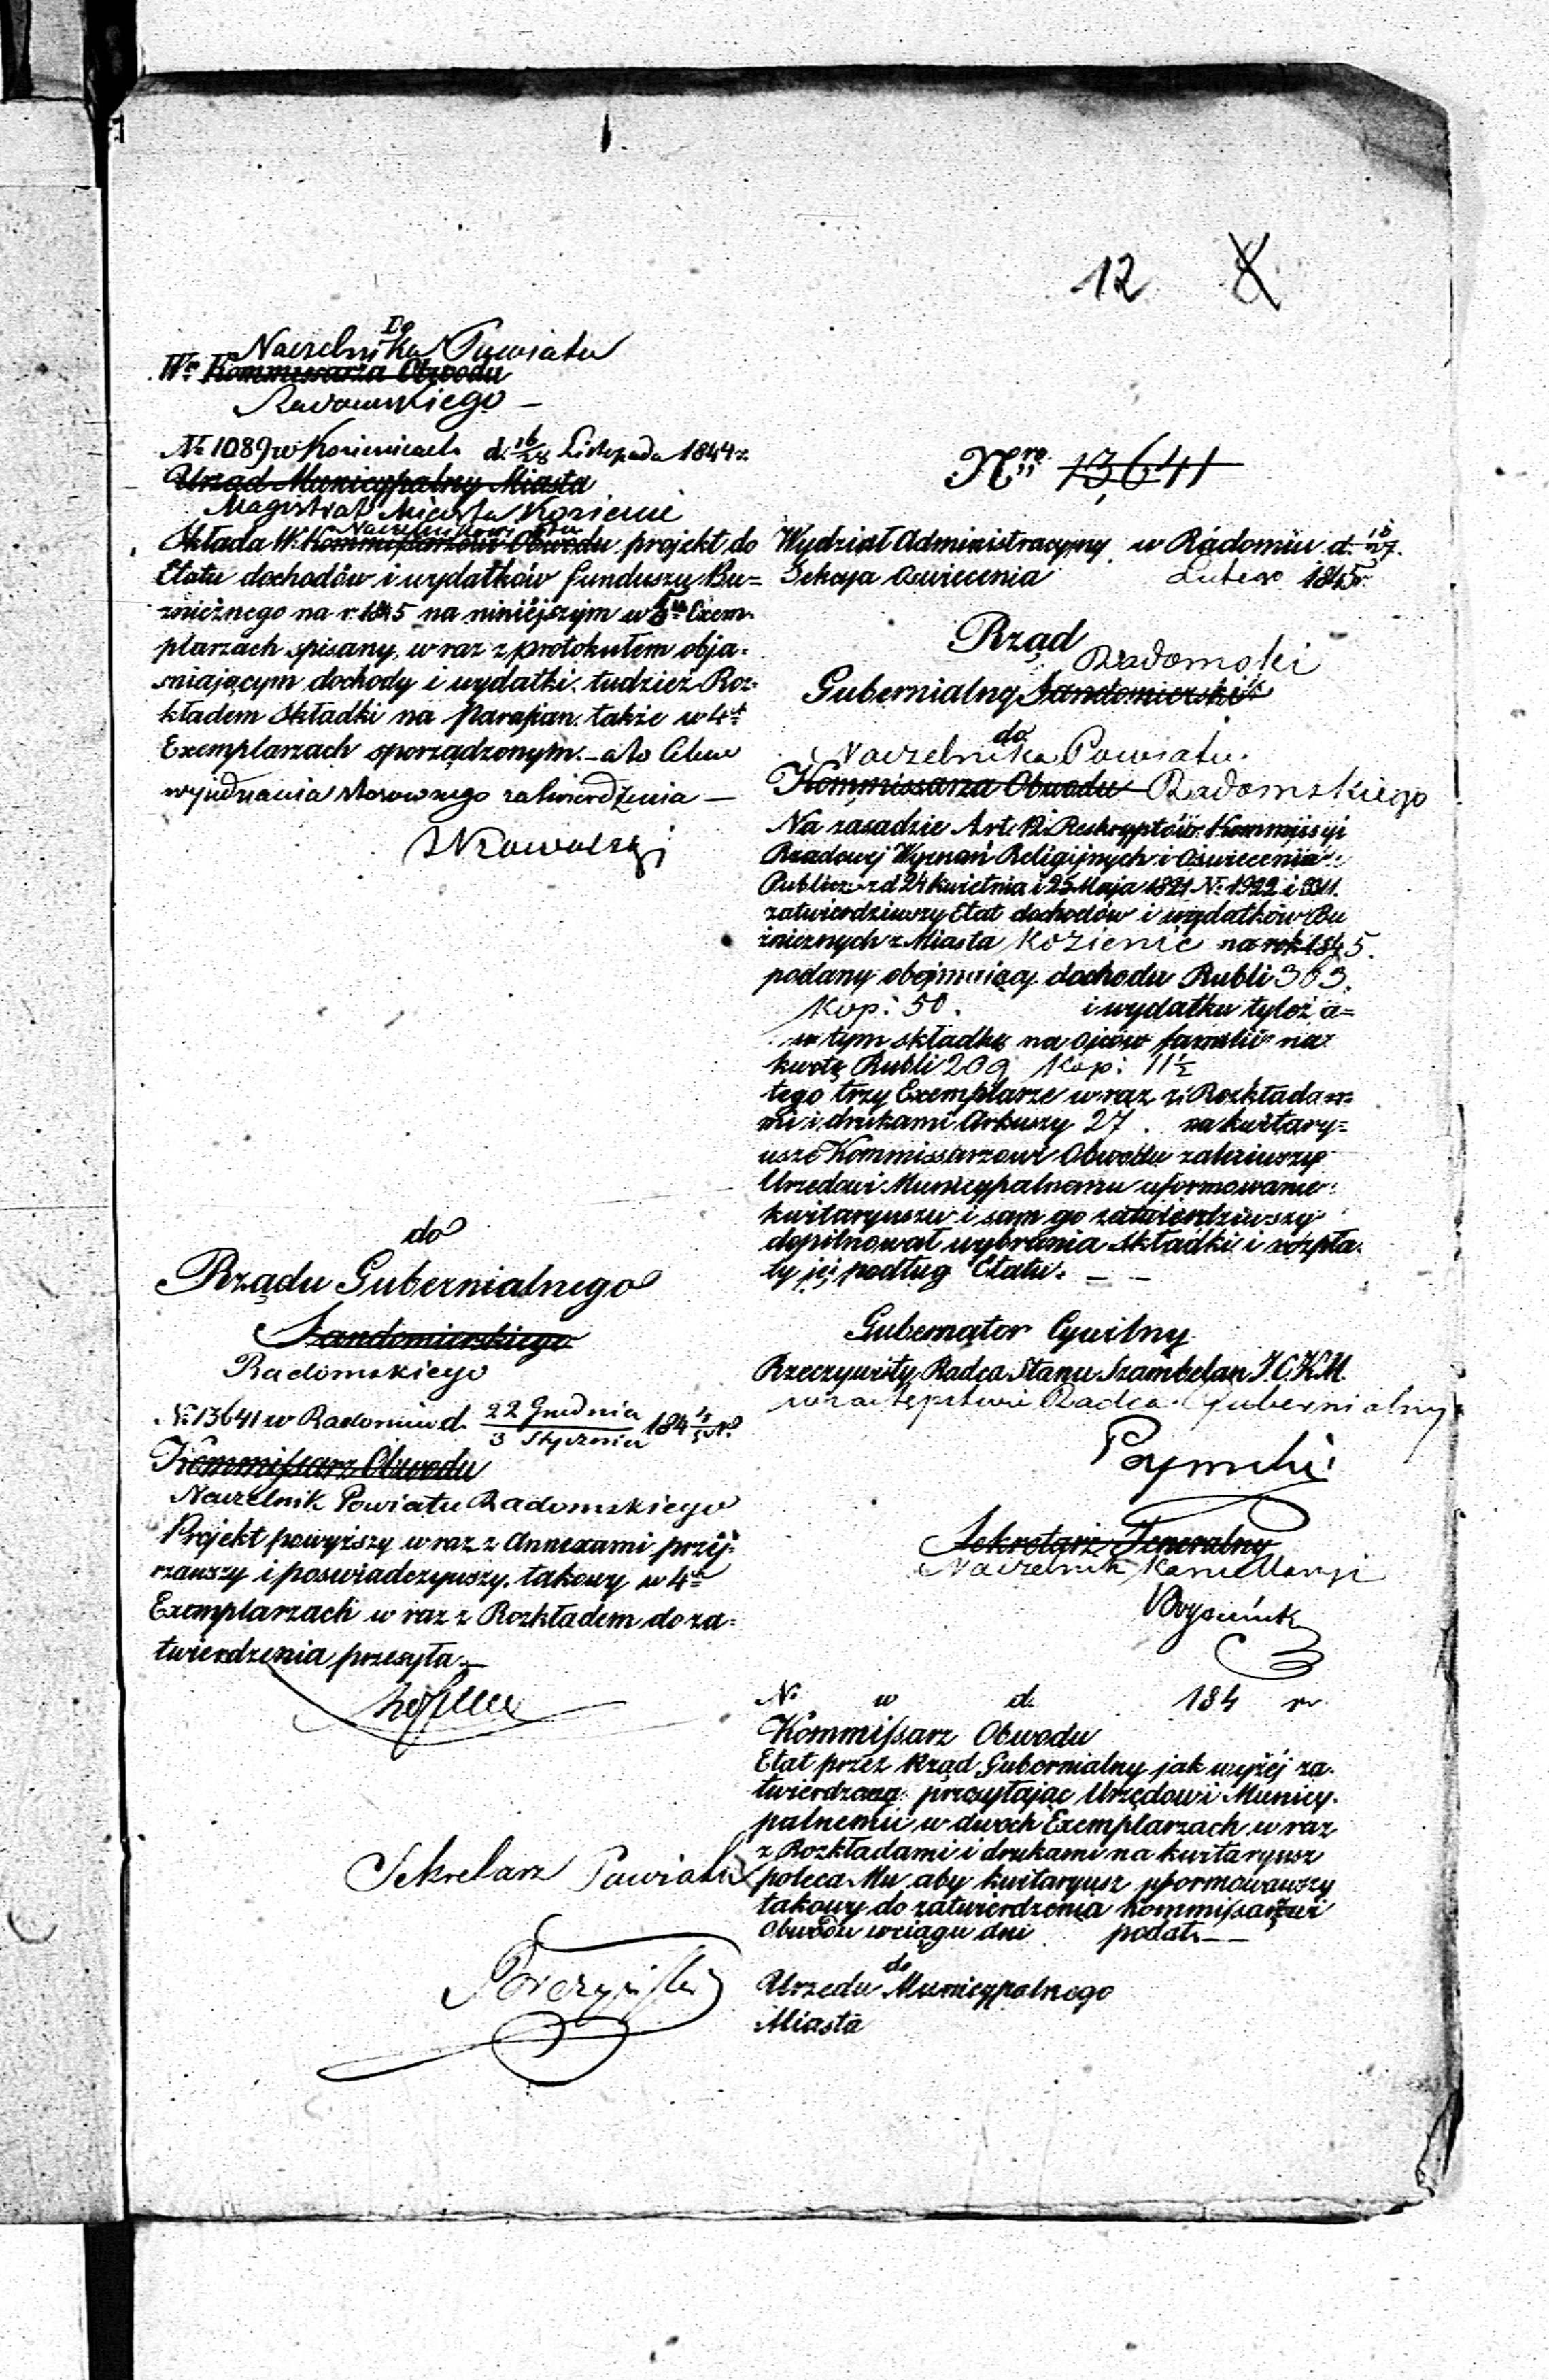 12 8
Do
Naczelnika Powiatu
Wo Kommissarza Obwodu
Radomskiego –
No 1089 w Kozienicach d. 16/28 Listopada 1844 r.
Urząd Municypalny Miasta
Magistrat Miasta Kozienic
Naczelnikowi Ptu
Składa W. Kommissarzowi Obwodu projekt do
Etatu dochodów i wydatków funduszu Bu=
znicznego na r. 1845 na niniéjszym w Exem-
plarzach spisany, w raz z protokułem obja-
sniającym dochody i wydatki, tudzież Roz-
kładem Składki na Parafian. także w 4ch
Exemplarzach sporządzonym. – a to Celem
wyjednania stosownego zatwierdzenia –
Kowalski
do
Rządu Gubernialnego
Sandomierskiego
Radomskiego
No 13641 w Radomiu d. 22 Grudnia / 3 Stycznia 184 4/5 r.
Kommissarz Obwodu
Naczelnik Powiatu Radomskiego
Projekt powyższy w raz z Annexami przéj-
rzawszy i poswiadczywszy, takowy w 4ch
Exemplarzach w raz z Rozkładem do za=
twierdzenia przesyła. –
Sekretarz Powiatu
Nro 13,641
Wydział Administracyjny w Radomiu d. 15/27.
Sekcya Oswiecenia Lutego 1845 r.
Rząd
Radomski
Gubernialny Sandomierski
do
Naczelnika Powiatu
Kommissarza Obwodu Radomskiego
Na zasadzie Art. 12. Reskryptów Kommissyi
Rządowéj Wyznań Religijnych i Oswiecenia
Publicz: z d 24 Kwietnia i 25 Maja 1821 No 1922 i 3311.
zatwierdziwszy Etat dochodów i wydatków Bu
żnicznych z Miasta Kozienic na rok 1845.
podany obejmujący dochodu Rubli 363.
Kop: 50. i wydatku tyloż a=
w tym składkę na ojców familii na
kwotę Rubli 209 Kop: 11½
tego trzy Exemplarze w raz z Rozkłada m
mi i drukami Arkuszy 27. na kwitary=
usze Kommissarzowi Obwodu zaleciwszy
Urzędowi Municypalnemu uformowanie
kwitaryuszu i sam go zatwierdziwszy
dopilnował wybrania składki i rozpła-
ty jéj podług Etatu. – –
Gubernator Cywilny
Rzeczywisty Radca Stanu Szambelan J.C.K.M.
w zastępstwie Radca Gubernialny
Sekretarz Jeneralny
Naczelnik Kancellaryi
No w d. 184 r.
Kommissarz Obwodu
Etat przez Rząd Gubernialny jak wyżéj za-
twierdzony przesyłając Urzędowi Municy-
palnemu w dwoch Exemplarzach w raz
z Rozkładami i drukami na kwitaryusz
poleca Mu aby kwitaryusz uformowawszy
takowy do zatwierdzenia Kommissarzowi
Obwodu w ciągu dni podał. – –
do
Urzędu Municypalnego
Miasta